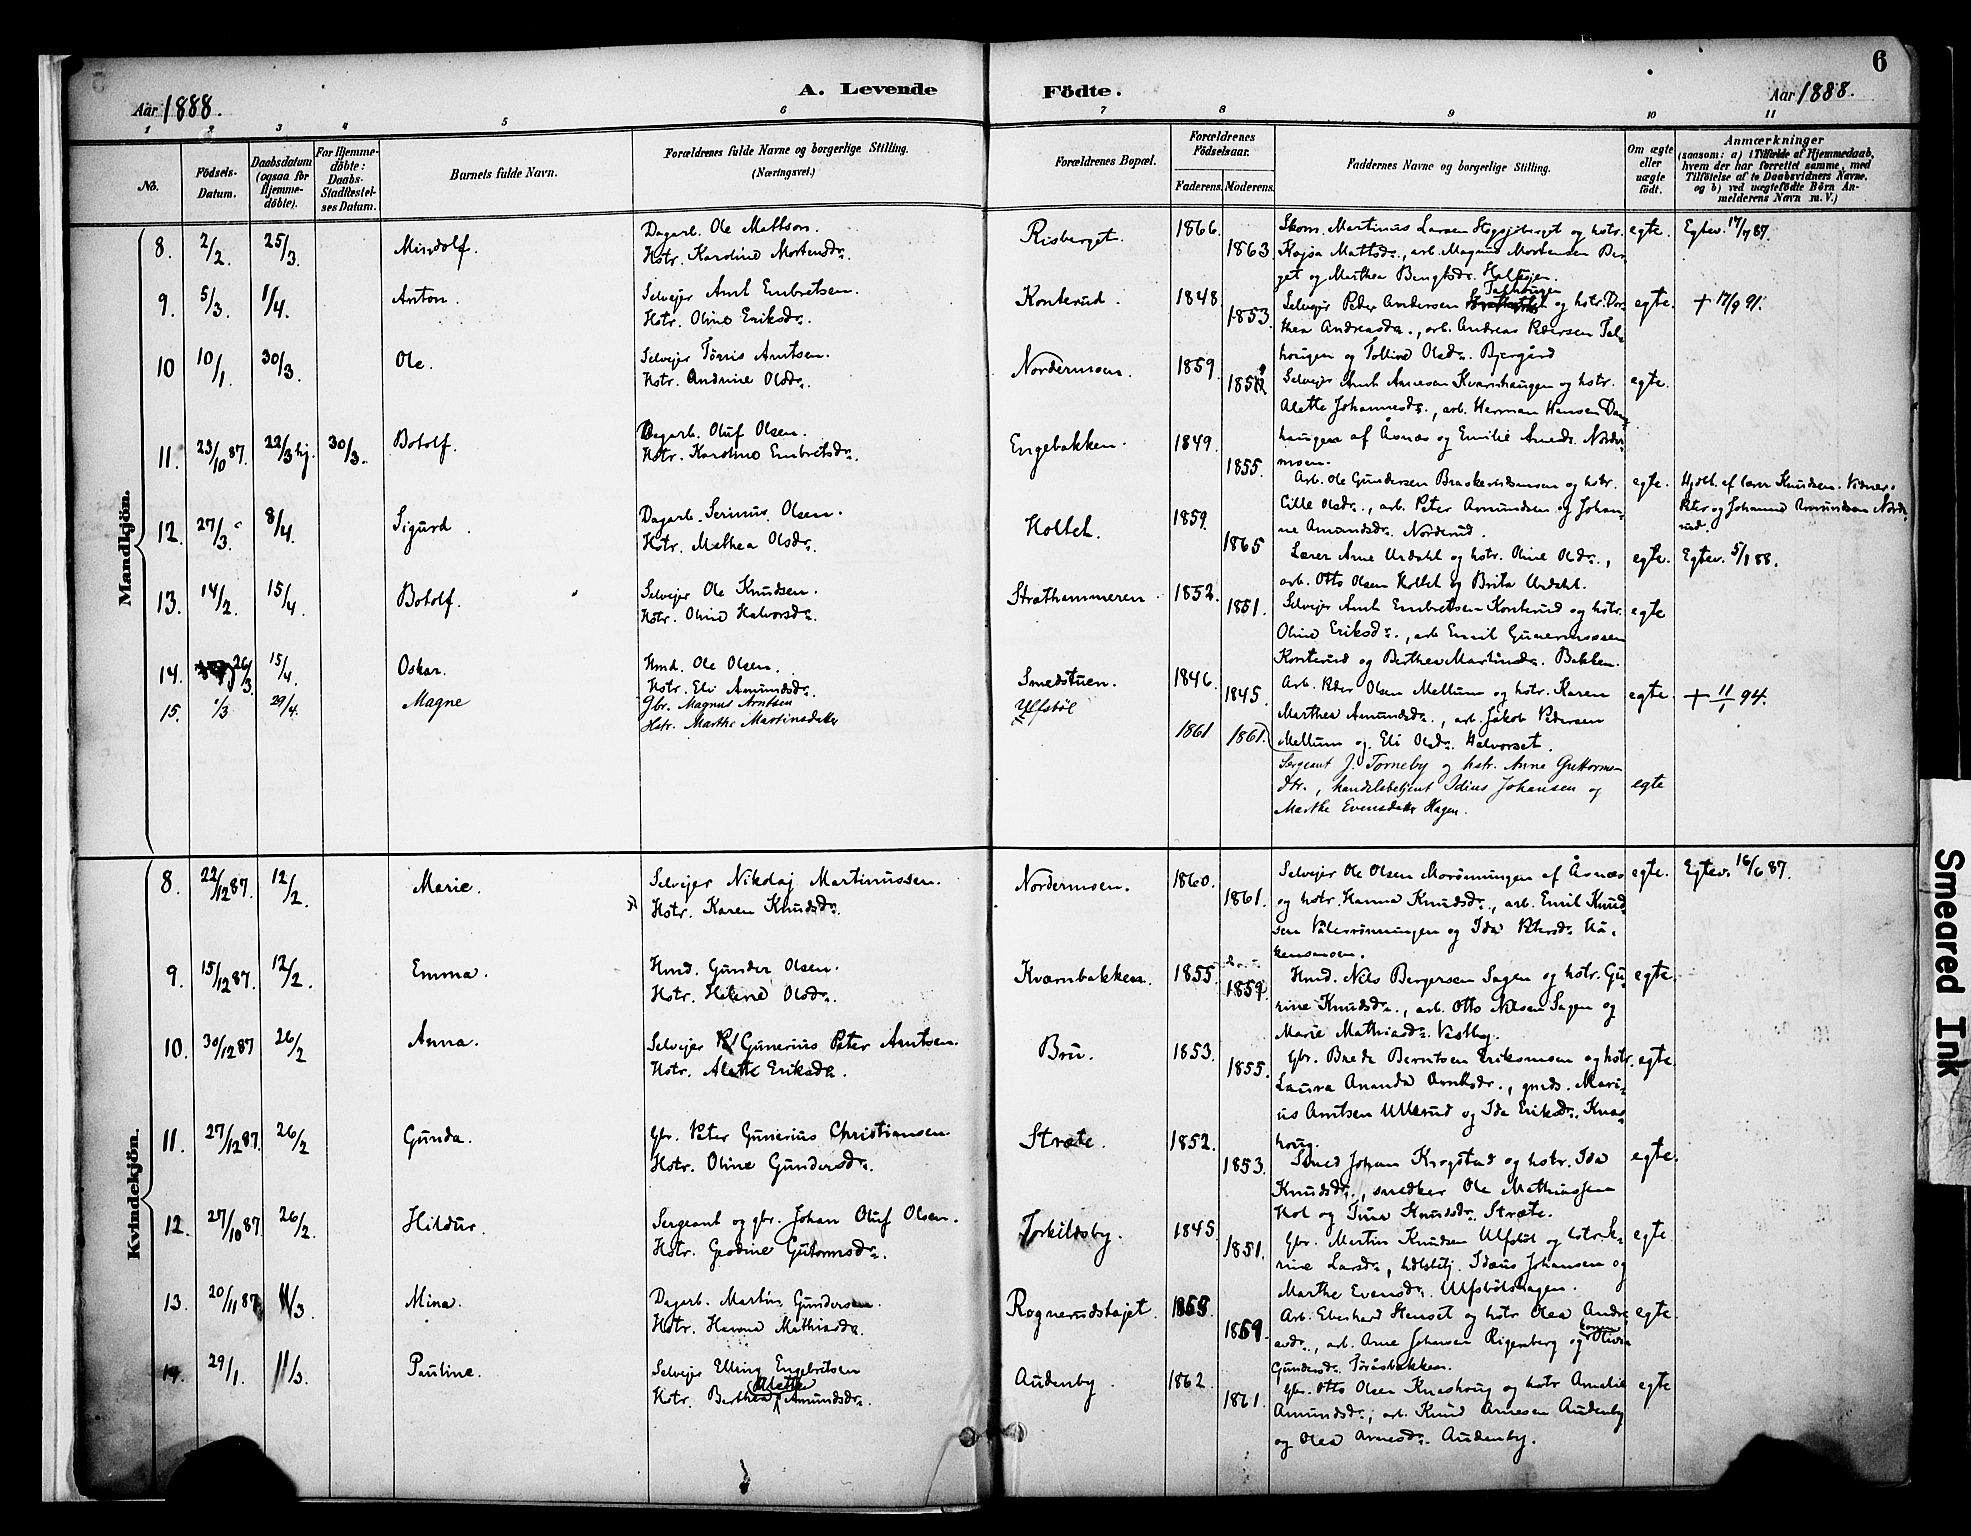 6
A. Levende Födte.
Aar 1888.
Aar 1888.
1 2 3 4 5 6 7 8 9 10 11
No.
Födsels-Datum.
Daabsdatum (ogsaa for Hjemmedöbte).
For Hjemmedöbte: Daabs-Stadfestelses Datum.
Barnets fulde Navn.
Forældrenes fulde Navne og borgerlige Stilling.
(Næringsvei.)
Forældrenes Bopæl.
Forældrenes Födselsaar.
Faderens. Moderens.
Faddernes Navne og borgerlige Stilling.
Om ægte eller uægte födt.
Anmærkninger
(saasom: a) i Tilfælde af Hjemmedaab, hvem der har forrettet samme, med Tilföielse af to Daabsvidners Navne, og b) ved uægtefödte Börn Anmelderens Navn m. V.)
Mandkjön.
8. 2/2. 25/3. Mindolf. Dagarb. Ole Mattson. Hstr. Karoline Mortensdr. Risberget. 1866. 1863
Skom. Martinus Larsen Hogsjöberget og hstr.
Kajsa Mattsdr., arb. Magnus Mortensen Ber-
get og Marthea Bengtsdr. Haltsjøen.
egte. Egtev. 17/7 87.
9. 5/3. 1/4. Anton. Selvejer Arnt Embretsen. Hstr. Oline Eriksdr. Konterud. 1848. 1853.
Selvejer Peder Andersen Talhaugen og hstr. Dor-
thea Andreasdr., arb. Andreas Pedersen Tal-
haugen og Tolline Olsdr. Bjergård
egte. + 17/9 91.
10 10/1. 30/3. Ole. Selvejer Tönnis Arntsen. Hstr. Andrine Olsdr. Nordermoen. 1859.
Selvejer Arnt Arnesen Kvarnhaugen og hstr.
Alette Johannesdr., arb. Herman Hansen Dam-
haugen af Åsnæs og Emilie Arnesdr. Norder-
moen.
egte.
11. 23/10 87. 22/3 hj. 30/3. Botolf. Dagarb. Oluf Olsen. Hstr. Karoline Embretsdr. Engebakken. 1849. 1855.
Arb. Ole Gundersen Braskerudsmoen og hstr.
Cille Olsdr., arb. Peter Amundsen og Johan-
ne Amundsdr. Norderud.
egte. Hjdbt. af lærer Knudsen. Vidner:
Peter og Johanne Amundsen Norde-
rud.
12. 27/3. 8/4. Sigurd. Dagarb. Serinus Olsen. Hstr. Mathea Olsdr. Holtet. 1859. 1865
Lærer Arne Urdahl og hstr. Oline Olsdr.,
arb. Otto Olsen Holtet og Brita Urdahl.
egte. Egtev. 5/1 88.
13. 14/2. 15/4. Botolf. Selvejer Ole Knudsen. Hstr. Oline Halvorsdr. Strathammeren 1852. 1851.
Selvejer Arnt Embretsen Konterud og hstr.
Oline Eriksdr., arb Emil Gunermoesen
Konterud og Berthea Martinsdr. Bakken.
egte
14. 26/3. 15/4. Oskar. Hmd. Ole Olsen. Hstr. Eli Amundsdr. Smedstuen. 1846. 1845.
Arb. Peder Olsen Mellum og hstr. Karen
Marthea Amundsdr., arb. Jakob Pedersen
Mellum og Eli Olsdr. Halvorset.
egte + 11/1 94.
15. 1/3 29/4. Magne Gbr. Magnus Arntsen Hstr. Marthe Martinsdatter Ulfsböl 1861 1861.
Sergeant J. Torneby og hstr. Anne Guttorms-
dtr., handelsbetjent Idius Johansen og
Marthe Evensdatter Hagen.
egte
Kvindekjön.
8. 22/12 87. 12/2. Marie. Selvejer Nikolaj Martinussen. Hstr. Karen Knudsdr. Nordermoen. 1860. 1861.
Selvejer Ole Olsen Morönningen af Åsnæs
og hstr. Hanna Knudsdr., arb. Emil Knud-
sen Vålerrönningen og Ida Petersdr. Hå-
kensmoen.
egte. Egtev. 16/6 87.
9. 15/12 87. 12/2. Emma. Hmd. Gunder Olsen. Hstr. Helene Olsdr. Kværnbakken. 1855. 1859
Hmd. Nils Bergersen Sagen og hstr. Gu-
rine Knudsdr., arb. Otto Nilsen Sagen og
Marie Mathiasdr. Vestby.
egte.
10. 30/12 87 26/2 Anna. Selvejer Gunerius Peter Arntsen. Hstr. Alette Eriksdr. Bru. 1853. 1855.
Gbr. Brede Berntsen Eriksmoen og hstr.
Laura Ananda Arntsdr., gmds. Mari-
us Arntsen Ullerud og Ida Eriksdr. Knas-
houg.
egte.
11. 27/12 87. 26/2 Gunda. Gbr. Peter Gunerius Christiansen. Hstr. Oline Gundersdr. Stræte. 1852. 1853.
Smed Johan Krogstad og hstr. Ida
Knudsdr., snedker Ole Mathiassen
Hol og Tine Knudsdr. Stræte.
egte.
12. 27/10 87 26/2. Hildur. Sergeant og gbr. Johan Oluf Olsen. Hstr. Geodine Gutormsdr. Torkildsby. 1845. 1851.
Gbr. Martin Knudsen Ulfsböl og hstr. Ka-
rine Larsdr., hdlsbtj. Idæus Johansen og
Marthe Evensdr. Ulfsbölshagen.
egte.
13. 20/11 87. 11/3 Mina. Dagarb. Martin Gundersen. Hstr. Hanna Mathiasdr. Rognerudstajet. 1859
Arb. Eberhard Stenset og hstr Olea Andre-
asdr., arb. Arne Johansen Rigenberg og Olivia
Gundersdr. Toråsbakken.
egte
14. 29/1. 11/3. Pauline. Selvejer Elling Engebretsen Hstr. Berthea Alette Amundsdr. Audenby. 1862. 1861.
Gbr. Otto Olsen Knashoug og hstr Amelie
Amundsdr., arb. Knud Arnesen Audenby
og Olea Arnesdr. Audenby.
egte
Smeared Ink